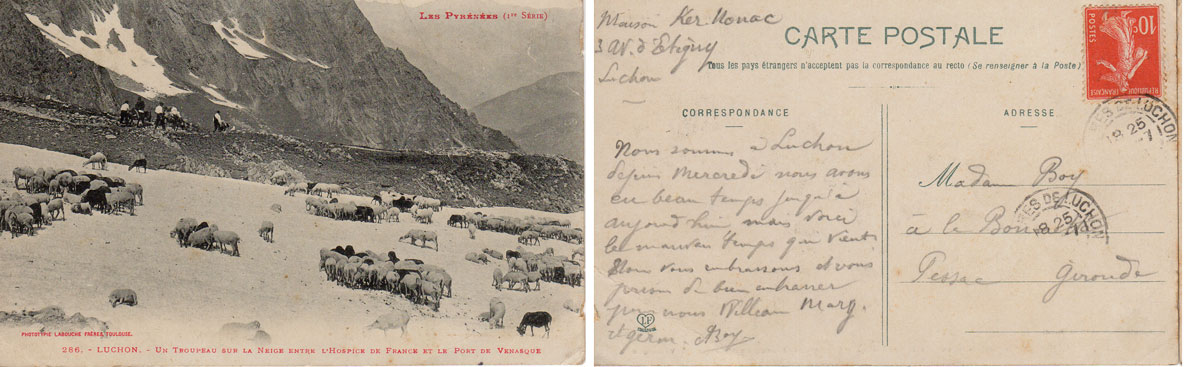 Les Pyrénées (1re Série)
PHOTOTYPIE LABOUCHE FRÈRES, TOULOUSE.
286. - LUCHON. - Un Troupeau sur la Neige entre l'Hospice de France et le Port de Venasque
Maison Ker.
3 Av. d'Etigny
Luchon
CARTE POSTALE
Tous les pays étrangers n'acceptent pas la correspondance au recto (Se renseigner à la Poste)
10c
POSTES
REPUBLIQUE FRANÇAISE
CORRESPONDANCE
ADRESSE
RES DE LUCHON
18 25
Nous sommes à Luchon
depuis mercredi nous avons
eu beau temps jusqu'à
aujourd'hui mais voici
le mauvais temps qui vient
vous embrassons et vous
prions de bien embrasser
pour nous William Marg.
et Boy
Madame Boy
à le
Pessac Gironde
RES DE LUCHON
18 25
LF